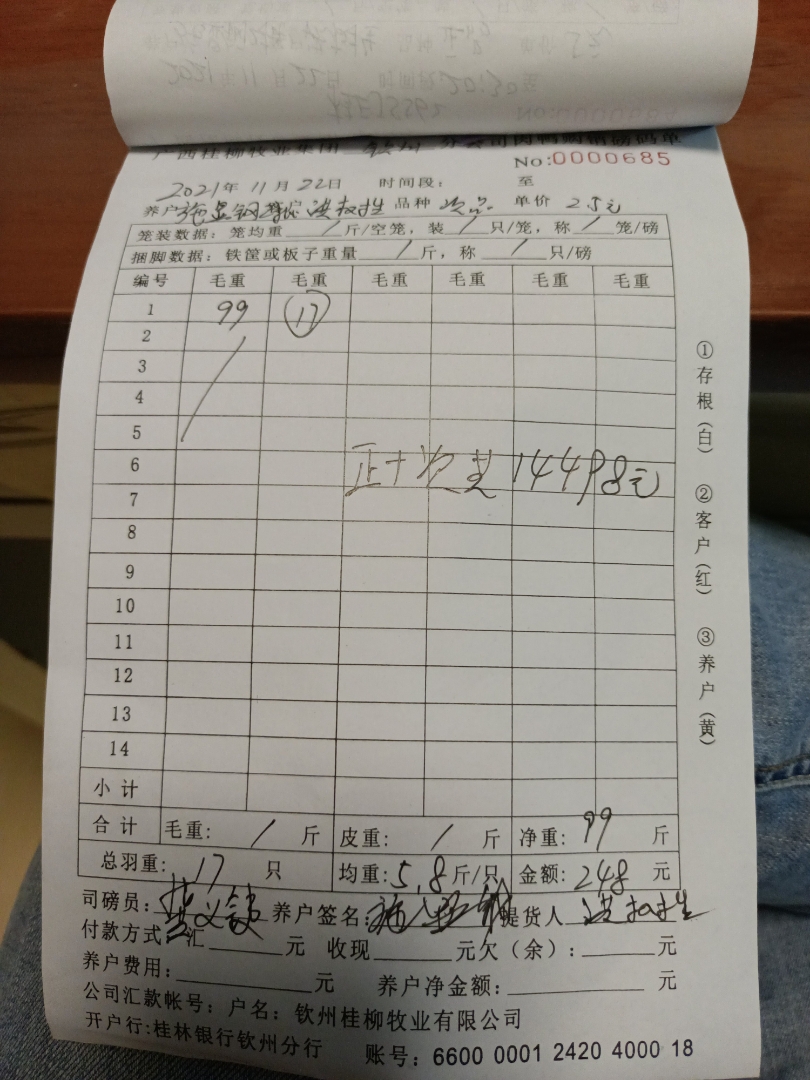 广西桂柳牧业集团 钦州 分公司肉鸭购销磅码单
No:0000685
2021年 11月 22日 时间段: 至
养户 品种 次品 单价 2.5元
笼装数据: 笼均重 / 斤/空笼, 装 / 只/笼, 称 / 笼/磅
捆脚数据: 铁筐或板子重量 / 斤, 称 / 只/磅
编号 毛重 毛重 毛重 毛重 毛重 毛重
1 99 17
2
3
4
5
6
正+次 14498元
7
8
9
10
11
12
13
14
小计
合计 毛重: / 斤 皮重: / 斤 净重: 99 斤
总羽重: 17 只 均重: 5.8 斤/只 金额: 248 元
司磅员: 养户签名: 提货人
付款方式: 汇 元 收现 元欠(余): 元
养户费用: 元 养户净金额: 元
公司汇款帐号: 户名: 钦州桂柳牧业有限公司
开户行:桂林银行钦州分行 账号: 6600 0001 2420 4000 18
①存根(白) ②客户(红) ③养户(黄)